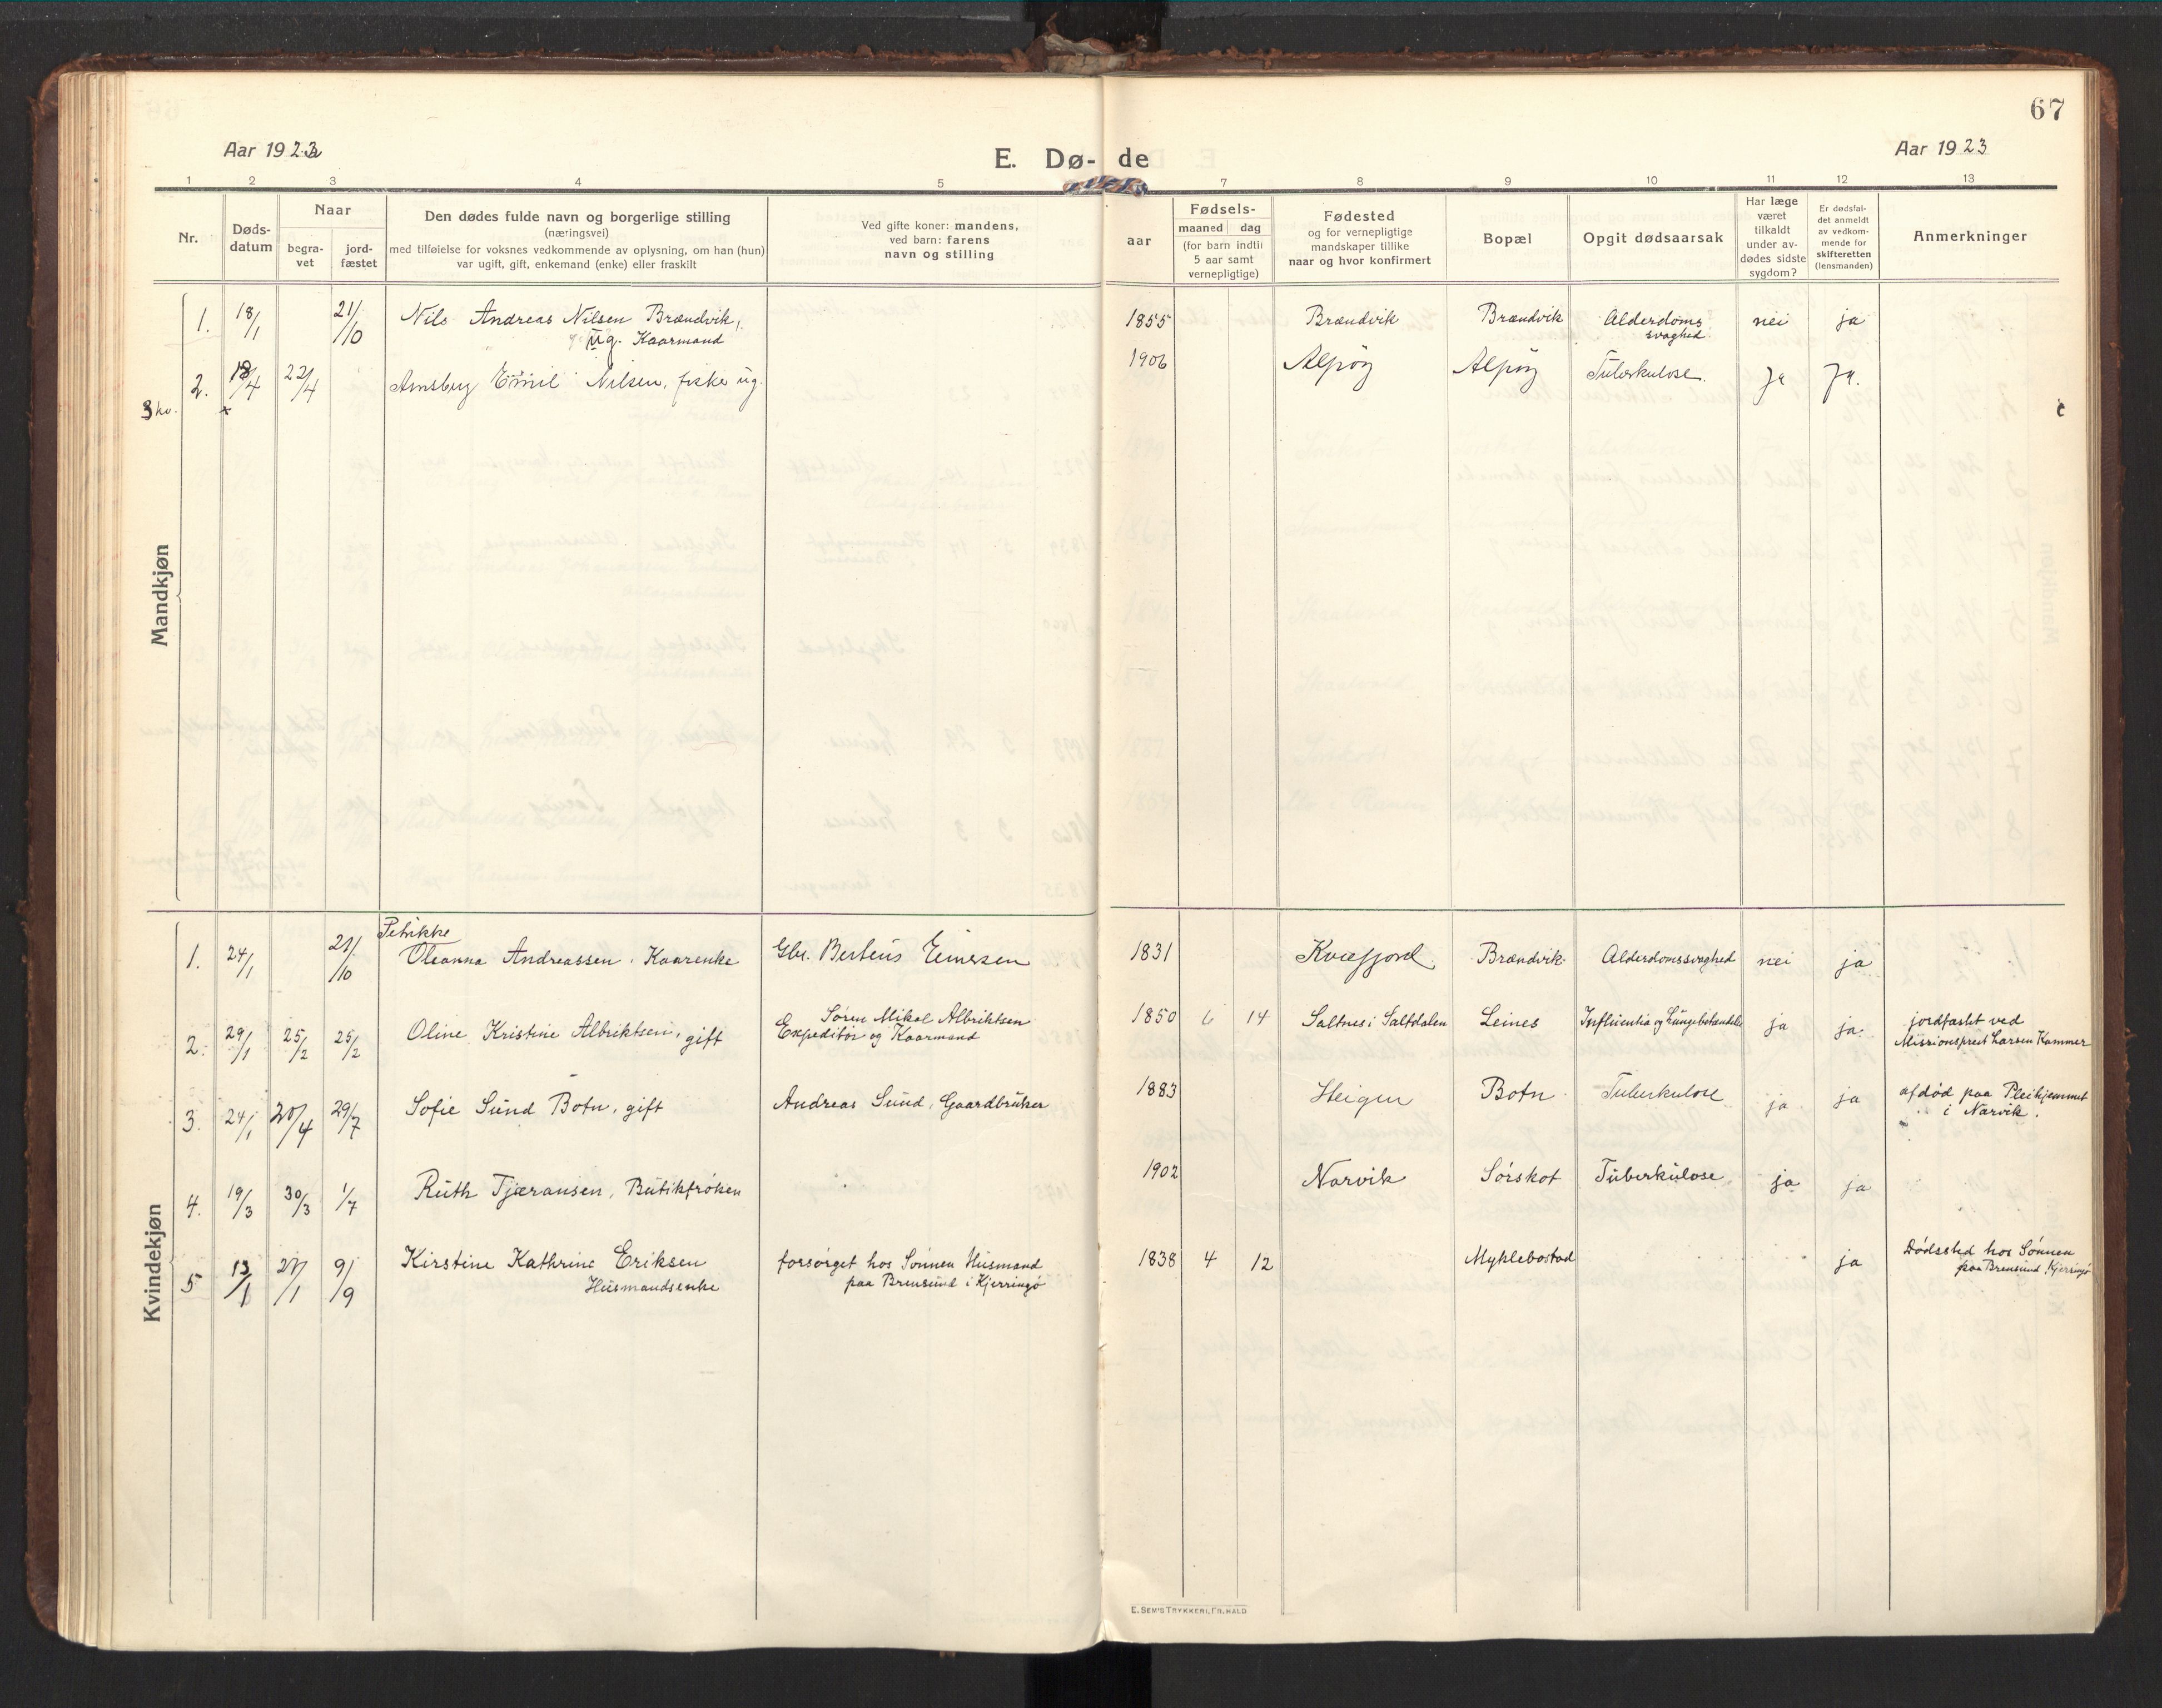 67
Aar 1923
E. Dø- de
Aar 1923
1 2 3 4 5 7 8 9 10 11 12 13
Nr.
Døds-
datum
Naar
begra-
vet
jord-
fæstet
Den dødes fulde navn og borgerlige stilling
(næringsvei)
med tilføielse for voksnes vedkommende av oplysning, om han (hun)
var ugift, gift, enkemand (enke) eller fraskilt
Ved gifte koner: mandens,
ved barn: farens
navn og stilling
aar
Fødsels-
maaned dag
(for barn indtil
5 aar samt
vernepligtige)
Fødested
og for vernepligtige
mandskaper tillike
naar og hvor konfirmert
Bopæl
Opgit dødsaarsak
Har læge
været
tilkaldt
under av-
dødes sidste
sygdom?
Er dødsfal-
det anmeldt
av vedkom-
mende for
skifteretten
(lensmanden)
Anmerkninger
Mandkjøn
1. 18/1 21/10 Nils Andreas Nilsen Brændvik, 1855 Brændvik Brændvik Alderdoms nei ja
ug. Kaarmand svaghed
2. 18/4 22/4 Amsberg Emil Nilsen, fisker ug. 1906 Alpøy Alpøy Tuberkulose. Ja Ja.
Kvindekjøn
Petrikke
1. 24/1 21/10 Oleanna Andreassen. Kaarenke Gbr. Berteus Einersen 1831 Kvæfjord. Brændvik Alderdomssvaghed nei ja
2. 29/1 25/2 25/2 Oline Kristine Albriktsen, gift Søren Mikal Albriktsen 1850 6 14 Saltnes i Saltdalen Leines Influentia og Lungebetændelse ja ja. jordfæstet ved
Expeditør og Kaarmand Missionsprest Larsen Kammer
3. 24/1 20/4 29/7 Sofie Sund Botn, gift Andreas Sund, Gaardbruker 1883 Steigen Botn Tuberkulose ja ja afdød paa Pleihjemmet
i Narvik.
4. 19/3 30/3 1/7 Ruth Tjæransen, Butikfrøken 1902 Narvik Sørskot Tuberkulose ja ja
5 13/1 27/1 9/9 Kirstine Kathrine Eriksen forsørget hos Sønnen Husmand 1838 4 12 Myklebostad ja Dødssted hos Sønnen
Husmandsenke paa Brensund i Kjerringø paa Brensund, Kjerringø
E. SEM'S TRYKKERI, FR. HALD